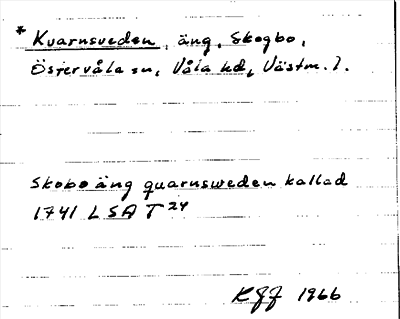 * Kvarnsveden, äng, Skogbo,
Östervåla sn, Våla hd, Västm. l.
Skobo äng quarnsweden kallad
1741 LSA T 24
KJJ 1966